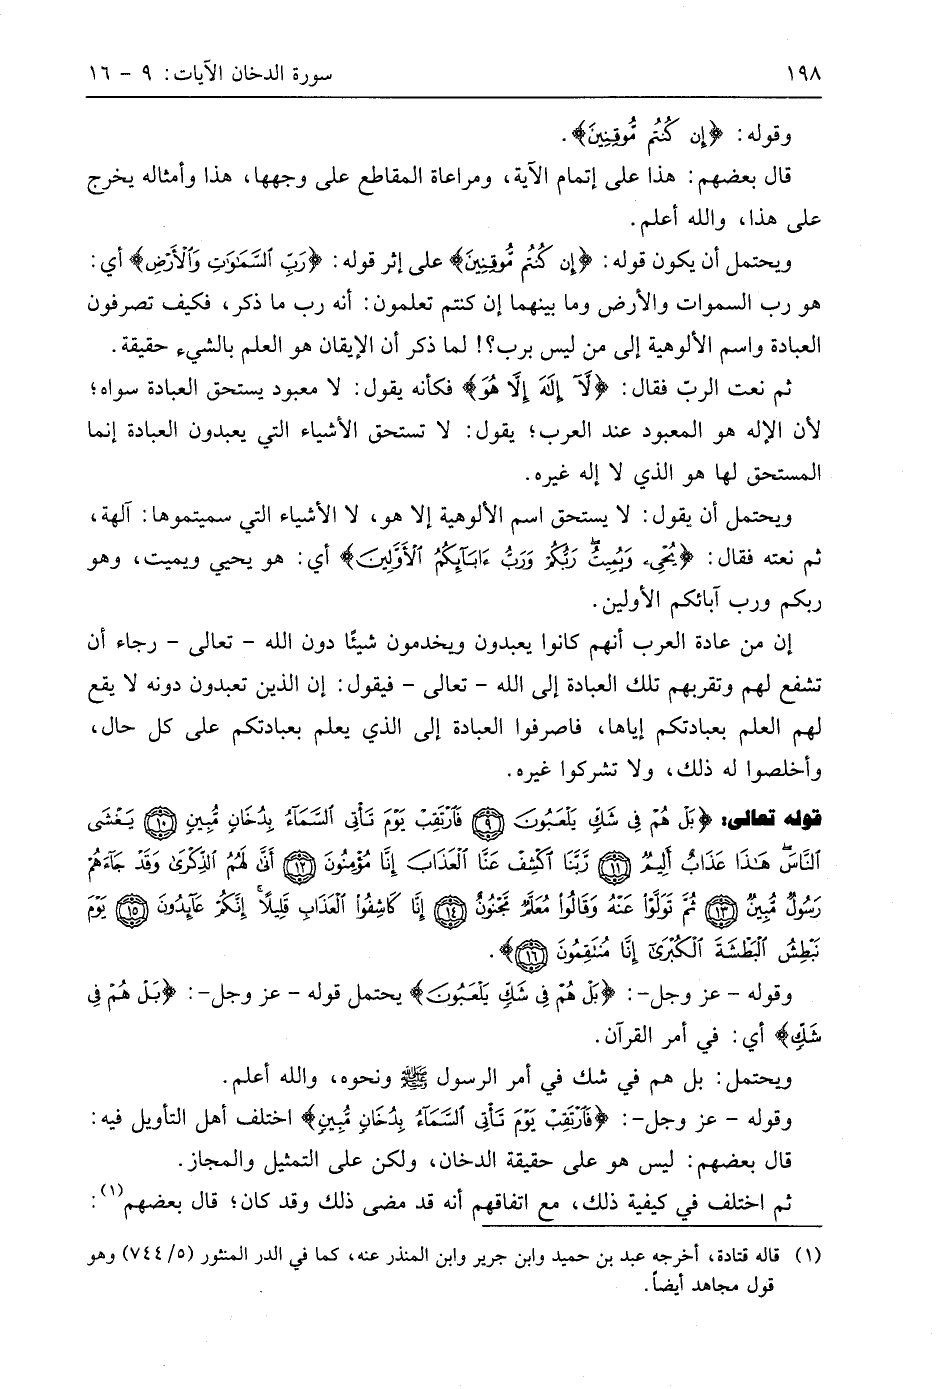 ١٩٨ سورة الدخان الآيات: ٩ - ١٦
وقوله: ﴿إِن كُنتُم مُّوقِنِينَ﴾.
قال بعضهم: هذا على إتمام الآية، ومراعاة المقاطع على وجهها، هذا وأمثاله يخرج
على هذا، والله أعلم.
ويحتمل أن يكون قوله: ﴿إِن كُنتُم مُّوقِنِينَ﴾ على إثر قوله: ﴿رَبِّ ٱلسَّمَٰوَٰتِ وَٱلْأَرْضِ﴾ أي:
هو رب السموات والأرض وما بينهما إن كنتم تعلمون: أنه رب ما ذكر، فكيف تصرفون
العبادة واسم الألوهية إلى من ليس برب؟! لما ذكر أن الإيقان هو العلم بالشيء حقيقة.
ثم نعت الربّ فقال: ﴿لَآ إِلَٰهَ إِلَّا هُوَ﴾ فكأنه يقول: لا معبود يستحق العبادة سواه؛
لأن الإله هو المعبود عند العرب؛ يقول: لا تستحق الأشياء التي يعبدون العبادة إنما
المستحق لها هو الذي لا إله غيره.
ويحتمل أن يقول: لا يستحق اسم الألوهية إلا هو، لا الأشياء التي سميتموها: آلهة،
ثم نعته فقال: ﴿يُحْىِۦ وَيُمِيتُ ۖ رَبُّكُمْ وَرَبُّ ءَابَآئِكُمُ ٱلْأَوَّلِينَ﴾ أي: هو يحيي ويميت، وهو
ربكم ورب آبائكم الأولين.
إن من عادة العرب أنهم كانوا يعبدون ويخدمون شيئًا دون الله - تعالى - رجاء أن
تشفع لهم وتقربهم تلك العبادة إلى الله - تعالى - فيقول: إن الذين تعبدون دونه لا يقع
لهم العلم بعبادتكم إياها، فاصرفوا العبادة إلى الذي يعلم بعبادتكم على كل حال،
وأخلصوا له ذلك، ولا تشركوا غيره.
قوله تعالى: ﴿بَلْ هُمْ فِى شَكٍّ يَلْعَبُونَ ۝٩ فَٱرْتَقِبْ يَوْمَ تَأْتِى ٱلسَّمَآءُ بِدُخَانٍ مُّبِينٍ ۝١٠ يَغْشَى
ٱلنَّاسَ ۖ هَٰذَا عَذَابٌ أَلِيمٌ ۝١١ رَّبَّنَا ٱكْشِفْ عَنَّا ٱلْعَذَابَ إِنَّا مُؤْمِنُونَ ۝١٢ أَنَّىٰ لَهُمُ ٱلذِّكْرَىٰ وَقَدْ جَآءَهُمْ
رَسُولٌ مُّبِينٌ ۝١٣ ثُمَّ تَوَلَّوْا۟ عَنْهُ وَقَالُوا۟ مُعَلَّمٌ مَّجْنُونٌ ۝١٤ إِنَّا كَاشِفُوا۟ ٱلْعَذَابِ قَلِيلًا ۚ إِنَّكُمْ عَآئِدُونَ ۝١٥ يَوْمَ
نَبْطِشُ ٱلْبَطْشَةَ ٱلْكُبْرَىٰٓ إِنَّا مُنتَقِمُونَ ۝١٦﴾.
وقوله - عز وجل-: ﴿بَلْ هُمْ فِى شَكٍّ يَلْعَبُونَ﴾ يحتمل قوله - عز وجل-: ﴿بَلْ هُمْ فِى
شَكٍّ﴾ أي: في أمر القرآن.
ويحتمل: بل هم في شك في أمر الرسول ﷺ ونحوه، والله أعلم.
وقوله - عز وجل-: ﴿فَٱرْتَقِبْ يَوْمَ تَأْتِى ٱلسَّمَآءُ بِدُخَانٍ مُّبِينٍ﴾ اختلف أهل التأويل فيه:
قال بعضهم: ليس هو على حقيقة الدخان، ولكن على التمثيل والمجاز.
ثم اختلف في كيفية ذلك، مع اتفاقهم أنه قد مضى ذلك وقد كان؛ قال بعضهم(١):
(١) قاله قتادة، أخرجه عبد بن حميد وابن جرير وابن المنذر عنه، كما في الدر المنثور (٧٤٤/٥) وهو
قول مجاهد أيضاً.